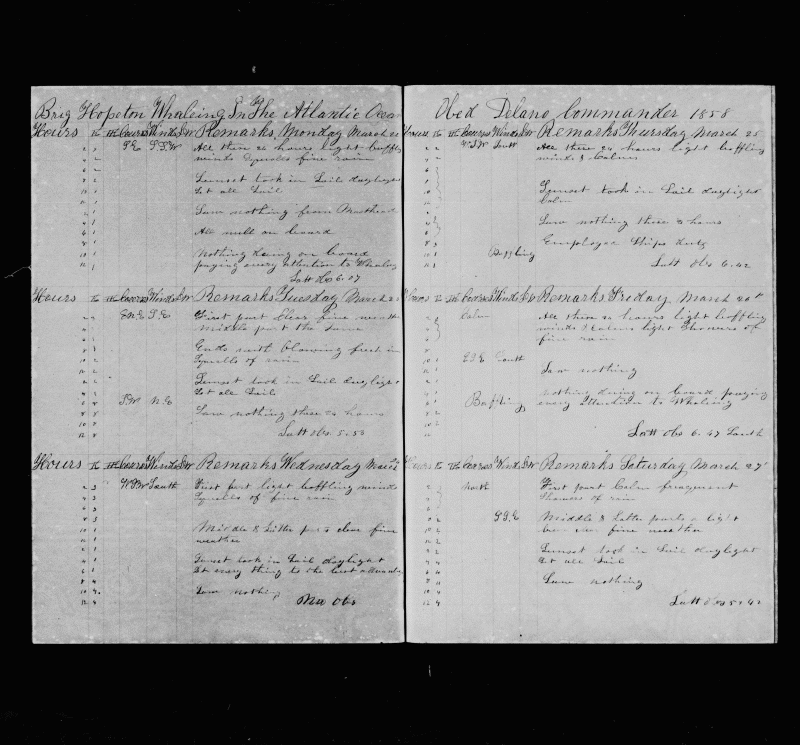 Brig Hopeton Whaleing In The Atlantic Ocean
Hours K HK Courses Winds LW Remarks Monday March 22
S.E S.S.W All these 24 hours light baffling
winds Squalls fine rain
Sunset took in Sail daylight
Set all Sail
Saw nothing from Masthead
All well on board
Nothing doing on board
paying every attention to Whaleing
Latt Obs 6.07
Hours K HK Courses Winds LW Remarks Tuesday March
ENE S.E First part Clear fine weather
Middle part the Same
Ends with blowing fresh in
Squalls of rain
Sunset took in Sail daylight
Set all Sail
S.W N.E
Saw nothing these 24 hours
Latt obs 5.50
Hours K HK Courses Winds LW Remarks Wednesday March
WSW South First part light baffling winds
Squalls of fine rain
Middle & Latter parts clear fine
weather
Sunset took in Sail daylight
Set every thing to the best advantage
Saw nothing
No Obs
Obed Delano Commander 1858
Hours K HK Courses Winds LW Remarks Thursday March 25
WSW South All these 24 hours light baffling
winds & Calms
Sunset took in Sail daylight
Calm
Saw nothing these 24 hours
Employed Ships duty
Baffling
Latt Obs 6.42
Hours K HK Courses Winds LW Remarks Friday March 26
Calm All these 24 hours light baffling
winds & Calms light Showers of
fine rain
ESE South
Saw nothing
nothing doing on board paying
Baffling every Attention to Whaleing
Latt Obs 6.47 South
Hours K HK Courses Winds LW Remarks Saturday March 27
North First part Calm frequent
Showers of rain
SSE Middle & Latter parts a light
fine weather
Sunset took in Sail daylight
Set all Sail
Saw nothing
Latt Obs 5.42